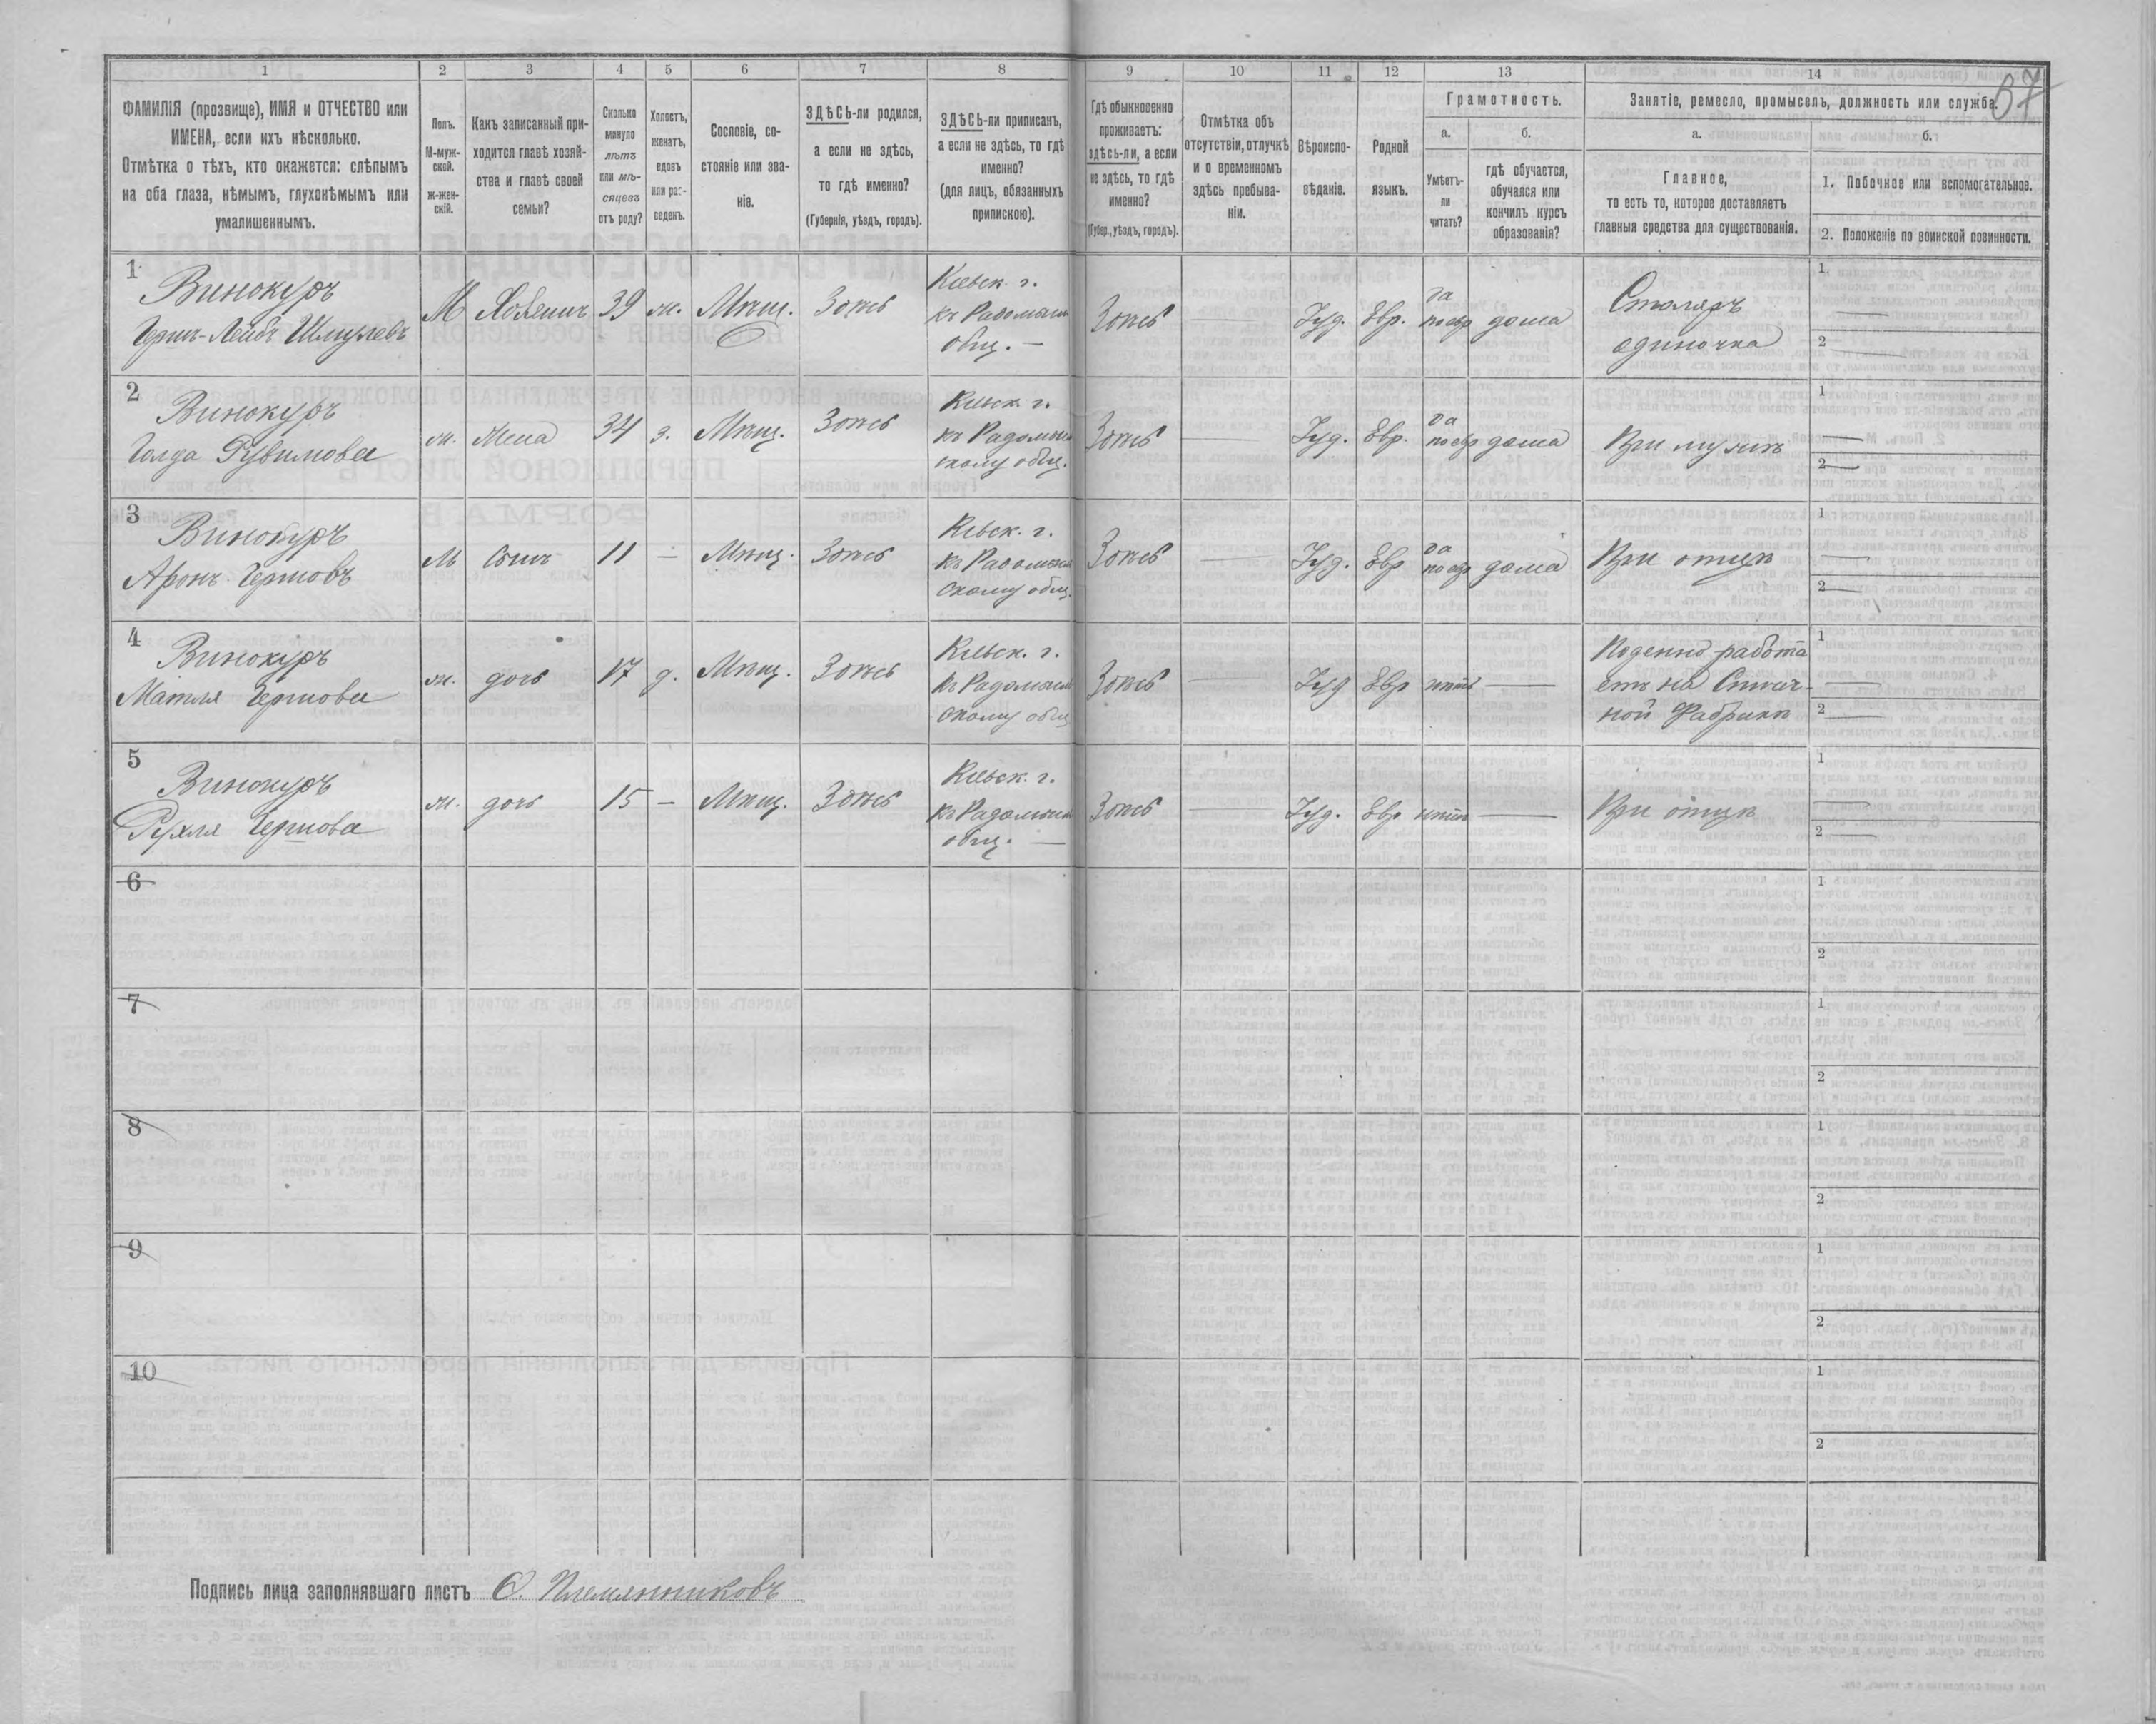 37
1 2 3 4 5 6 7 8 9 10 11 12 13 14
ФАМИЛІЯ (прозвище), ИМЯ и ОТЧЕСТВО или
ИМЕНА, если ихъ нѣсколько.
Отмѣтка о тѣхъ, кто окажется: слѣпымъ
на оба глаза, нѣмымъ, глухонѣмымъ или
умалишеннымъ.
Полъ.
М-муж-
ской.
ж-жен-
скій.
Какъ записанный при-
ходится главѣ хозяй-
ства и главѣ своей
семьи?
Сколько
минуло
лѣтъ
или мѣ-
сяцевъ
отъ роду?
Холостъ,
женатъ,
вдовъ
или раз-
веденъ.
Сословіе, со-
стояніе или зва-
ніе.
ЗДѢСЬ-ли родился,
а если не здѣсь,
то гдѣ именно?
(Губернія, уѣздъ, городъ).
ЗДѢСЬ-ли приписанъ,
а если не здѣсь, то гдѣ
именно?
(для лицъ, обязанныхъ
припискою).
Гдѣ обыкновенно
проживаетъ:
здѣсь-ли, а если
не здѣсь, то гдѣ
именно?
(Губер., уѣздъ, городъ).
Отмѣтка объ
отсутствіи, отлучкѣ
и о временномъ
здѣсь пребыва-
ніи.
Вѣроиспо-
вѣданіе.
Родной
языкъ.
Грамотность.
а.
Умѣетъ-
ли
читать?
б.
гдѣ обучается,
обучался или
кончилъ курсъ
образованія?
Занятіе, ремесло, промыселъ, должность или служба.
а.
Главное,
то есть то, которое доставляетъ
главныя средства для существованія.
б.
1. Побочное или вспомогательное.
2. Положеніе по воинской повинности.
1
Винокуръ
Гершъ-Лейбъ Шмулевъ
М Хозяинъ 39 ж. Мѣщ. Здѣсь
Кіевск. г.
къ Радомысл
общ. —
Здѣсь — Іуд. Евр.
да
по евр дома
Столяръ
одиночка
1 —
2 —
2
Винокуръ
Голда Рувимова
ж. Жена 34 з. Мѣщ. Здѣсь
Кіевск. г.
къ Радомысл
скому общ.
Здѣсь — Іуд. Евр.
да
по евр дома
При мужѣ
1 —
2 —
3
Винокуръ
Аронъ Гершовъ
М Сынъ 11 — Мѣщ. Здѣсь
Кіевск. г.
къ Радомысл
скому общ.
Здѣсь — Іуд. Евр
да
по евр дома
При отцѣ
1 —
2 —
4
Винокуръ
Матля Гершова
ж. дочь 17 д. Мѣщ. Здѣсь
Кіевск. г.
къ Радомысл
скому общ
Здѣсь — Іуд Евр нѣтъ —
Поденно работа
етъ на Спичеч-
ной Фабрикѣ
1 —
2 —
5
Винокуръ
Рухля Гершова
ж. дочь 15 — Мѣщ. Здѣсь
Кіевск. г.
къ Радомысл
общ. —
Здѣсь — Іуд. Евр нѣтъ —
При отцѣ
1 —
2 —
6
1
2
7
1
2
8
1
2
9
1
2
10
1
2
Подпись лица заполнявшаго листъ С. Племянниковъ